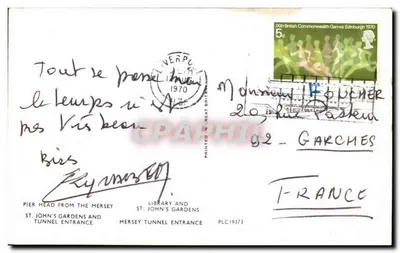 Tout se passe bien
le temps n'est
pas très beau
Bises
PIER HEAD FROM THE MERSEY
ST. JOHN'S GARDENS AND
TUNNEL ENTRANCE
LIBRARY AND
ST. JOHN'S GARDENS
MERSEY TUNNEL ENTRANCE
PLC19373
PRINTED IN GREAT BRITAIN
LIVERPOOL
1970
IXth British Commonwealth Games Edinburgh 1970
5d
Monsieur
20, rue Pasteur
92 - GARCHES
FRANCE